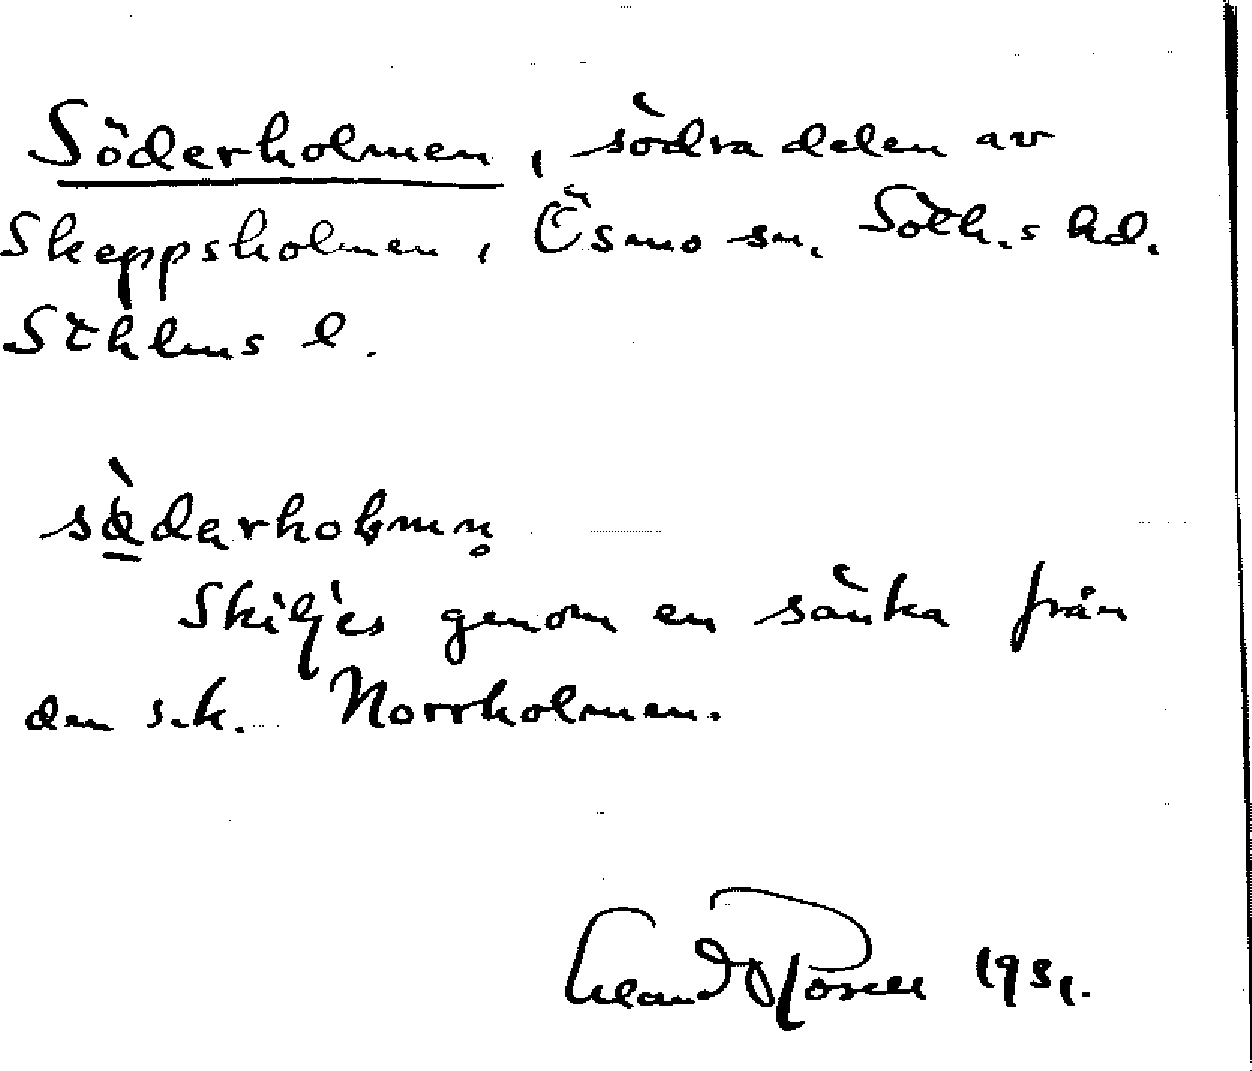 Söderholmen, södra delen av
Skeppsholmen, Ösmo sn. Soth.s hd.
Sthlms l.
sö̀darholmn̥
Skiljes genom en sänka från
den s.k. Norrholmen.
1931.